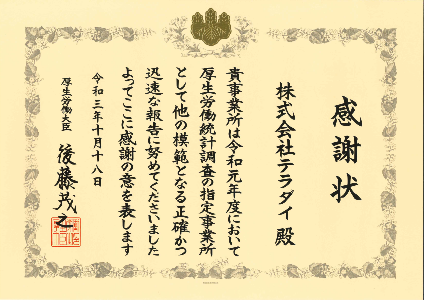 感謝状
株式会社テラダイ 殿
貴事業所は令和元年度において
厚生労働統計調査の指定事業所
として他の模範となる正確かつ
迅速な報告に努めてくださいました
よってここに感謝の意を表します
令和三年十月十八日
厚生労働大臣 後藤茂之